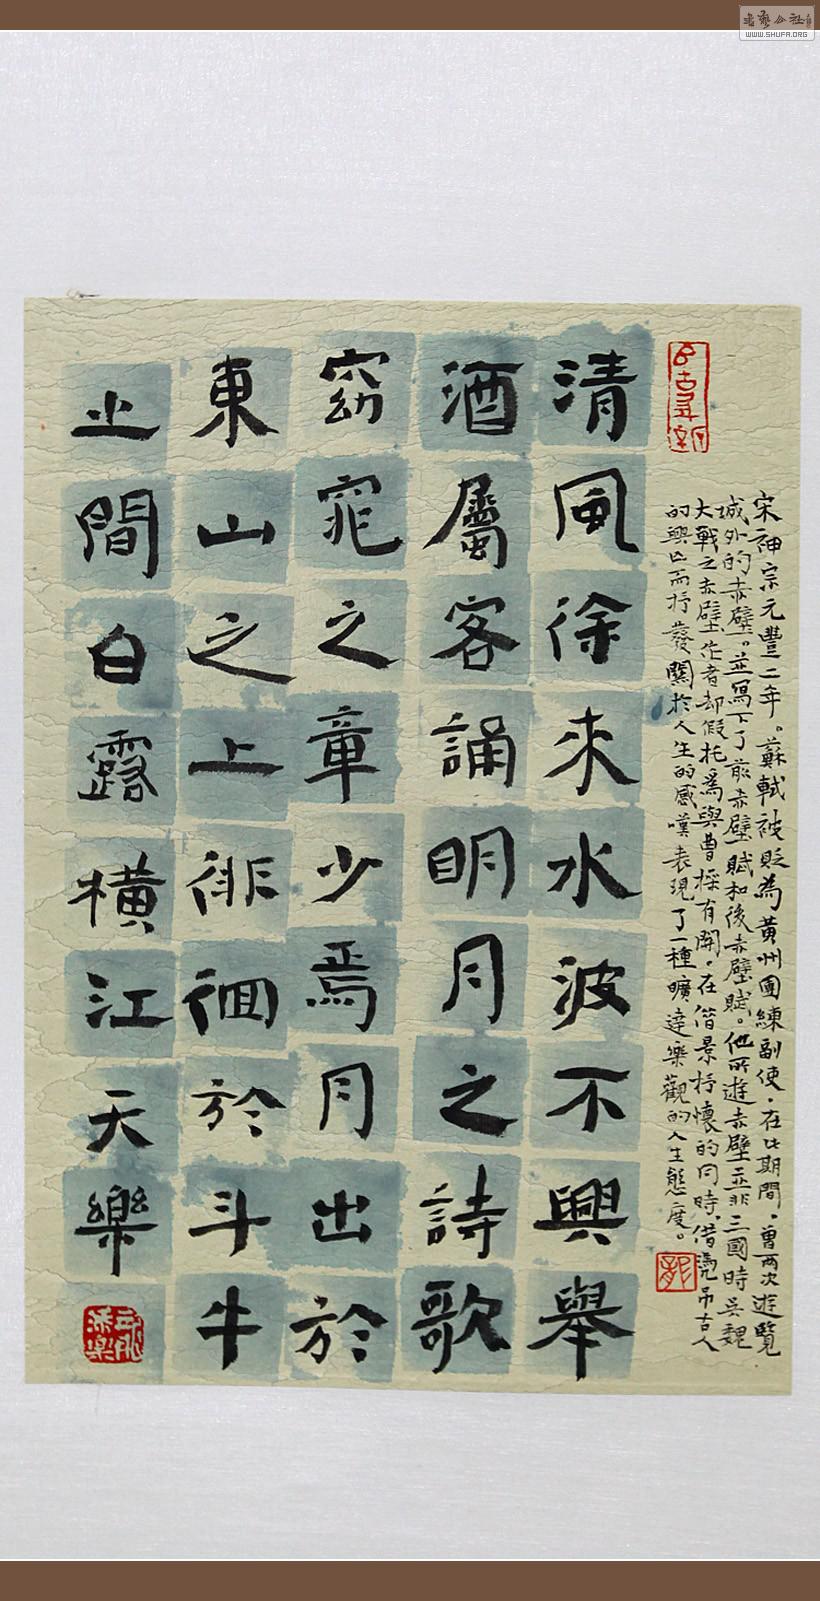 清風徐來水波不興舉
酒屬客誦明月之詩歌
窈窕之章少焉月出於
東山之上徘徊於斗牛
之間白露橫江天樂
宋神宗元豐二年。蘇軾被貶為黃州團練副使。在此期間。曾兩次遊覽
城外的赤壁。並寫下了前赤壁賦和後赤壁賦。他所遊赤壁並非三國時吳魏
大戰之赤壁。作者却假托為與曹操有關。在借景抒懷的同時。借憑吊古人
的興亡而抒發關於人生的感嘆表現了一種曠達樂觀的人生態度。
WWW.SHUFA.ORG